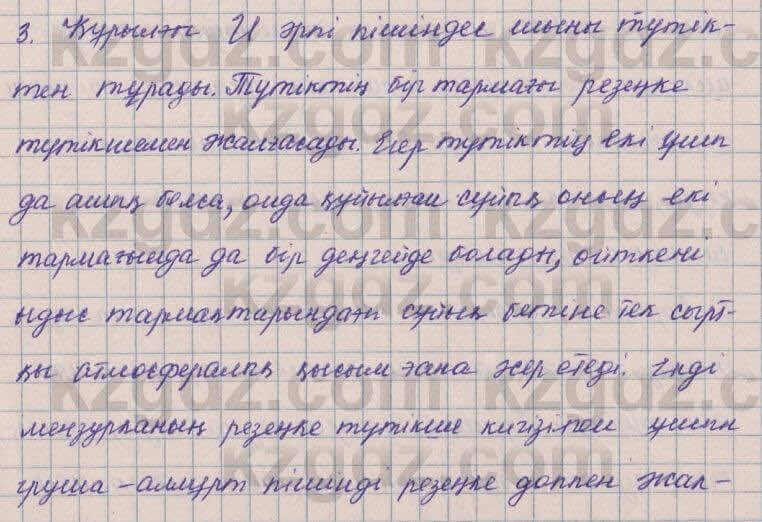 3. Құрылғы U әрпі пішіндес шыны түтік-
тен тұрады. Түтіктің бір тармағы резеңке
түтікшемен жалғасады. Егер түтіктің екі ұшы
да ашық болса, онда құйылған сұйық оның екі
тармағында да бір деңгейде болады, өйткені
ыдыс тармақтарындағы сұйық бетіне тек сырт-
қы атмосфералық қысым ғана әсер етеді. Енді
мензурканың резеңке түтікше кигізілген ұшын
груша - алмұрт пішінді резеңке доппен жал-
kzgdz.com